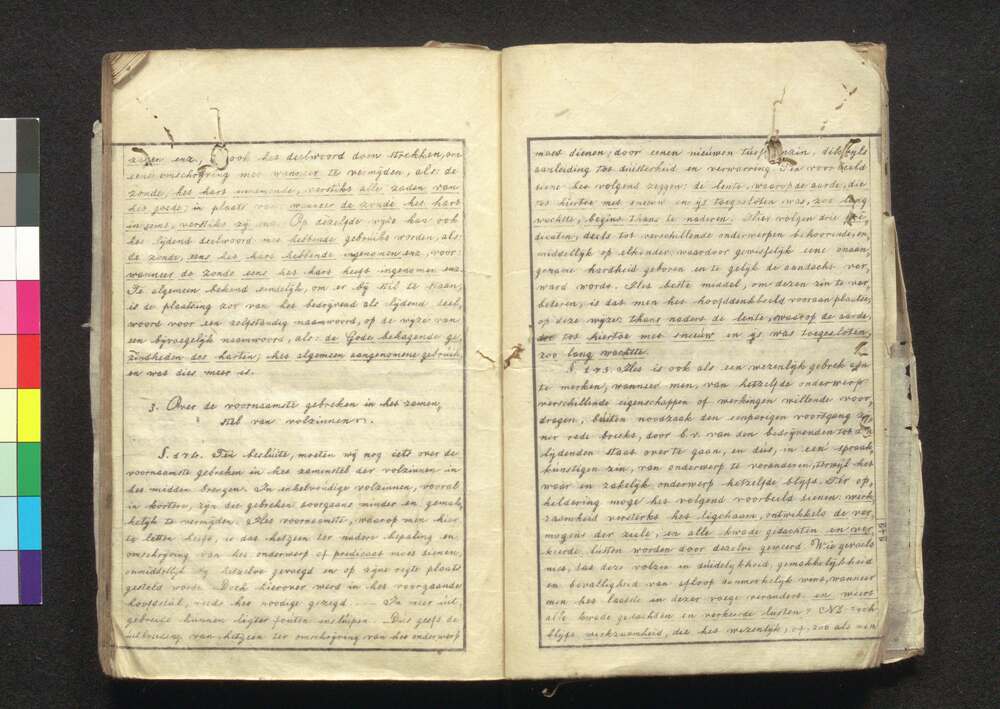 zagen enz., ook het deelwoord doen strekken, om
eene omschrijving met wanneer te vermijden, als: de
zonde, het hart innemende, verstikt alle zaden van
het goede; in plaats van: wanneer de zonde het hart
inneemt, verstikt zij enz. Op dezelfde wijze kan ook
het lijdend deelwoord met hebbende gebruikt worden, als:
de zonde, eens het hart hebbende ingenomen enz., voor:
wanneer de zonde eens het hart heeft ingenomen enz.
Te algemeen bekend eindelijk, om er bij stil te staan,
is de plaatsing zoo van het bedrijvend als lijdend deel,
woord voor een zelfstandig naamwoord, op de wijze van
een bijvoegelijk naamwoord, als: de Gode behagende ge,
zindheden des harten; het algemeen aangenomene gebruik,
en wat dies meer is.
3. Over de voornaamste gebreken in het zamen,
stel van volzinnen.
§. 274. Ten besluite, moeten wij nog iets over de
voornaamste gebreken in het zamenstel der volzinnen in
het midden brengen. In enkelvoudige volzinnen, vooral
in kortere, zijn die gebreken doorgaans minder en gemak,
kelijk te vermijden. Het voornaamste, waarop men hier
te letten heeft, is dat hetgeen ter nadere bepaling en
omschrijving van het onderwerp of predicaat moet dienen,
onmiddellijk bij hetzelve gevoegd en op zijne regte plaats
gesteld worde. Doch hierover werd in het voorgaande
hoofdstuk, reeds het noodige gezegd. In meer uit,
gebreide kunnen ligter fouten insluipen. Dus geeft de
uitbreiding van hetgeen ter omschrijving van het onderwerp
moet dienen, door eenen nieuwen tusschenzin, dikwijls
aanleiding tot duisterheid en verwarring. Ten voorbeeld
diene het volgend zeggen: de lente, waarop de aarde, die
tot hiertoe met sneeuw en ijs toegesloten was, zoo lang
wachtte, begint thans te naderen. Hier volgen drie pre,
dicaten, deels tot verschillende onderwerpen behoorende, on,
middellijk op elkander, waardoor gewisselijk eene onaan,
gename hardheid geboren en te gelijk de aandacht ver,
ward wordt. Het beste middel, om dezen zin te ver,
beteren, is dat men het hoofddenkbeeld vooraan plaatse,
op deze wijze: thans nadert de lente, waarop de aarde,
die tot hiertoe met sneeuw en ijs was toegesloten,
zoo lang wachtte.
§. 275. Het is ook als een wezenlijk gebrek aan
te merken, wanneer men, van hetzelfde onderwerp
verschillende eigenschappen of werkingen willende voor,
dragen, buiten noodzaak den eenparigen voortgang zij,
ner rede breekt, door b.v. van den bedrijvenden tot den
lijdenden staat over te gaan, en dus, in een' spraak,
kunstigen zin, van onderwerp te veranderen, terwijl het
waar en zakelijk onderwerp hetzelfde blijft. Ter op,
heldering moge het volgend voorbeeld dienen: werk,
zaamheid versterkt het ligchaam, ontwikkelt de ver,
mogens der ziele; en alle kwade gedachten en ver,
keerde lusten worden door dezelve geweerd. Wie gevoelt
niet, dat deze volzin in duidelijkheid, gemakkelijkheid
en bevalligheid van afloop aanmerkelijk wint, wanneer
men het laatste in dezer voege verandert: en weert
alle kwade gedachten en verkeerde lusten?
blijft werkzaamheid, die het wezenlijk, of zoo als men